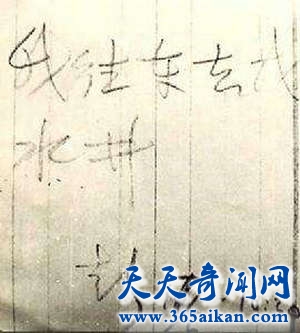 我往东去找
水井
彭
天天奇闻网
www.365saikan.com